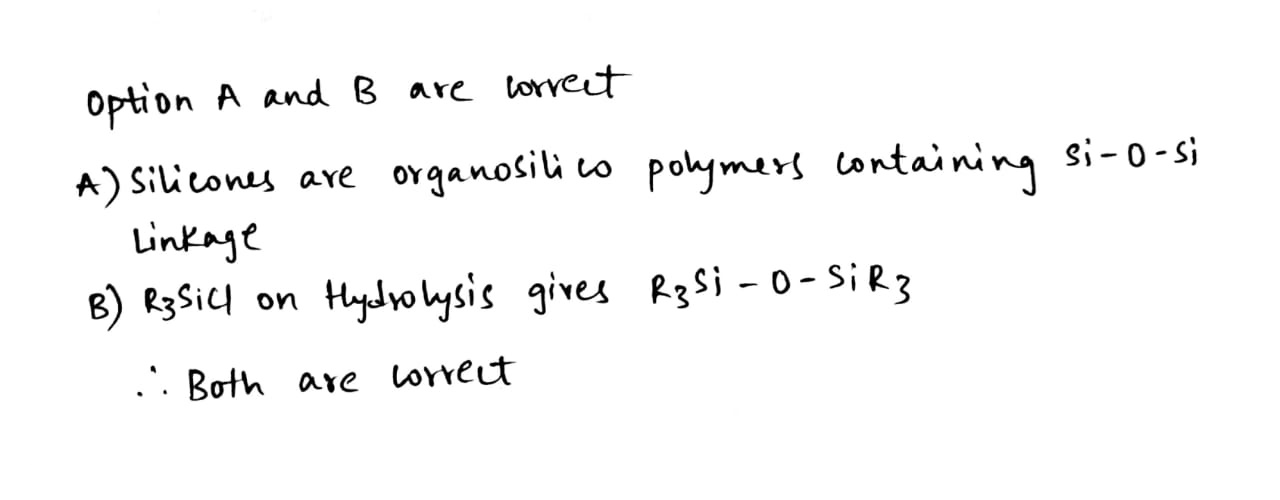 Option A and B are correct
A) Silicones are organosilico polymers containing Si-O-Si
Linkage
B) R3SiCl on Hydrolysis gives R3Si-O-SiR3
∴ Both are correct